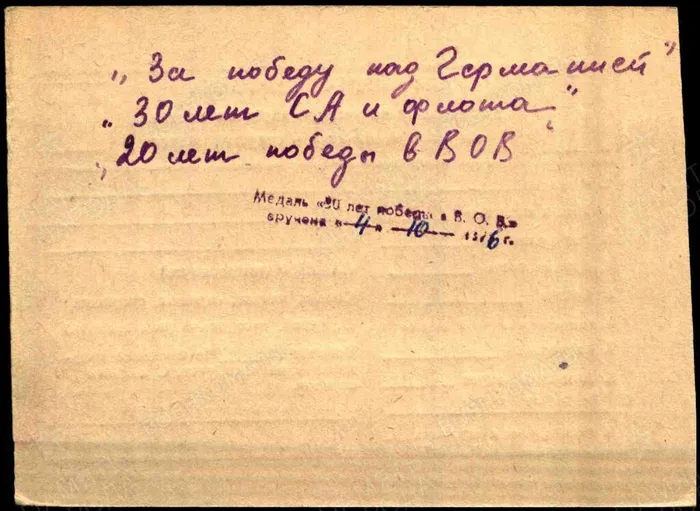 „За победу над Германией"
„30 лет СА и флота"
„20 лет победы в ВОВ"
Медаль «30 лет победы в В. О. В.»
вручена «4» 10 1976 г.